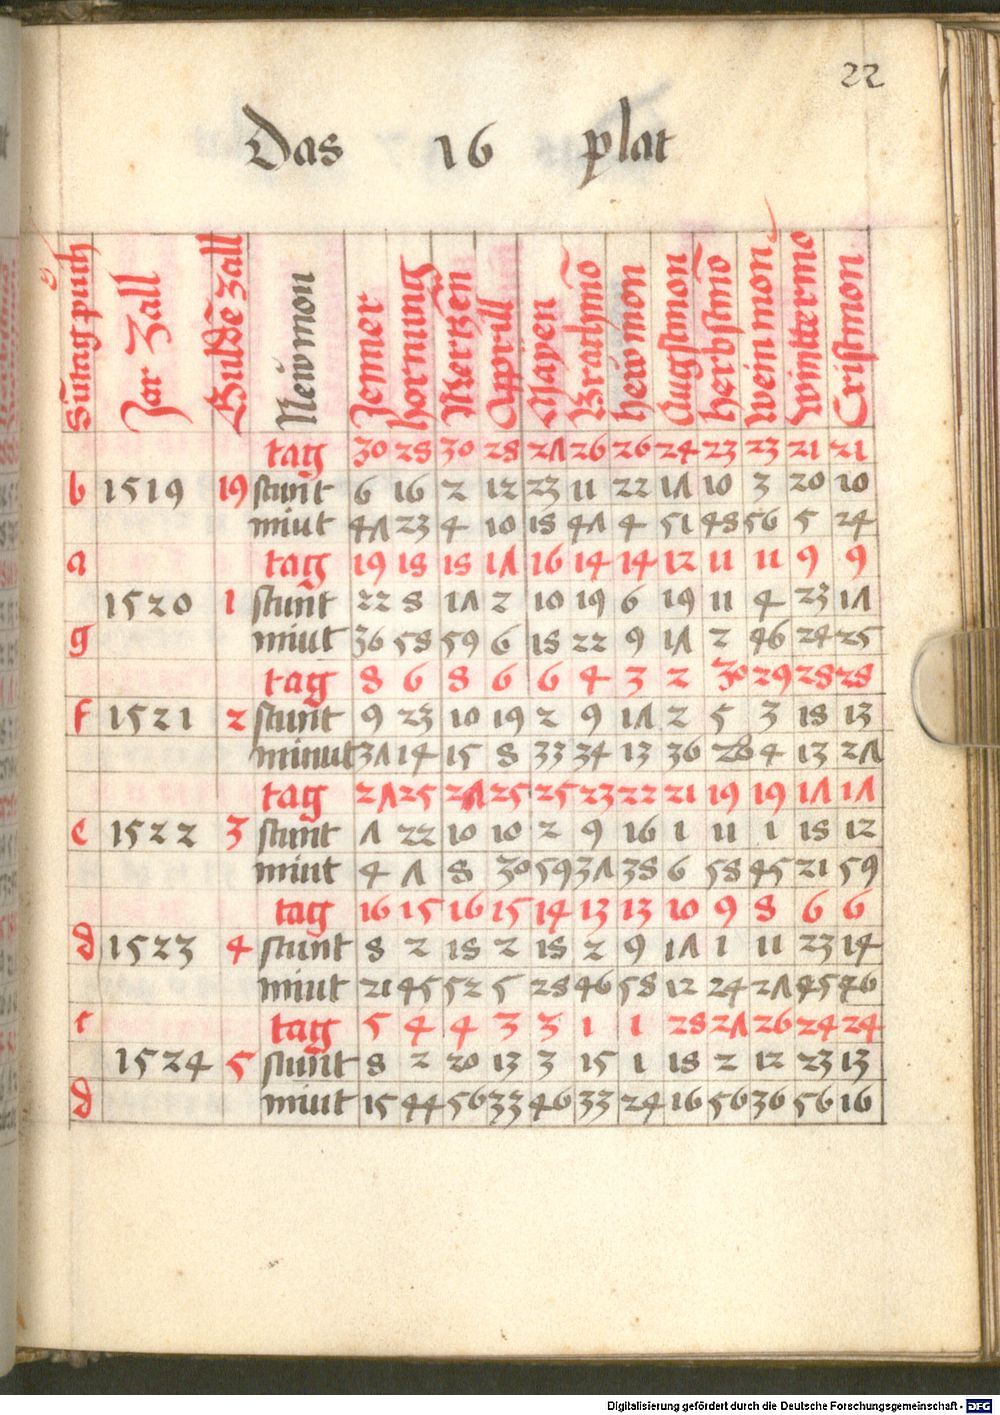 22
Das 16 plat
Sūtag puch Jar Zall Guldē zall Newmon Jenner hornung Mertzen Apprill Mayen Brachmō heẅmon Augstmon herbstmō weinmon wintermo Cristmon
tag 30 28 30 28 27 26 26 24 23 23 21 21
b 1519 19 stunt 6 16 2 12 23 11 22 17 10 3 20 10
miut 47 23 4 10 18 47 4 51 48 56 5 24
a tag 19 18 18 17 16 14 14 12 11 11 9 9
1520 1 stunt 22 8 17 2 10 19 6 19 11 4 23 17
g miut 36 58 59 6 18 22 9 17 2 46 24 25
tag 8 6 8 6 6 4 3 2 30 29 28 28
f 1521 2 stunt 9 23 10 19 2 9 17 2 5 3 18 13
minut 37 14 15 8 33 34 13 36 28 4 13 27
tag 27 25 27 25 25 23 22 21 19 19 17 17
e 1522 3 stunt 7 22 10 10 2 9 16 1 11 1 18 12
miut 4 7 8 30 59 37 38 6 58 45 21 59
tag 16 15 16 15 14 13 13 10 9 8 6 6
d 1523 4 stunt 8 2 18 2 18 2 9 17 1 11 23 14
miut 21 45 52 5 28 46 58 12 24 27 45 26
c tag 5 4 4 3 3 1 1 28 27 26 24 24
1524 5 stunt 8 2 20 13 3 15 1 18 2 12 23 13
d miut 15 44 56 33 46 33 24 16 56 36 56 16
Digitalisierung gefördert durch die Deutsche Forschungsgemeinschaft - DFG